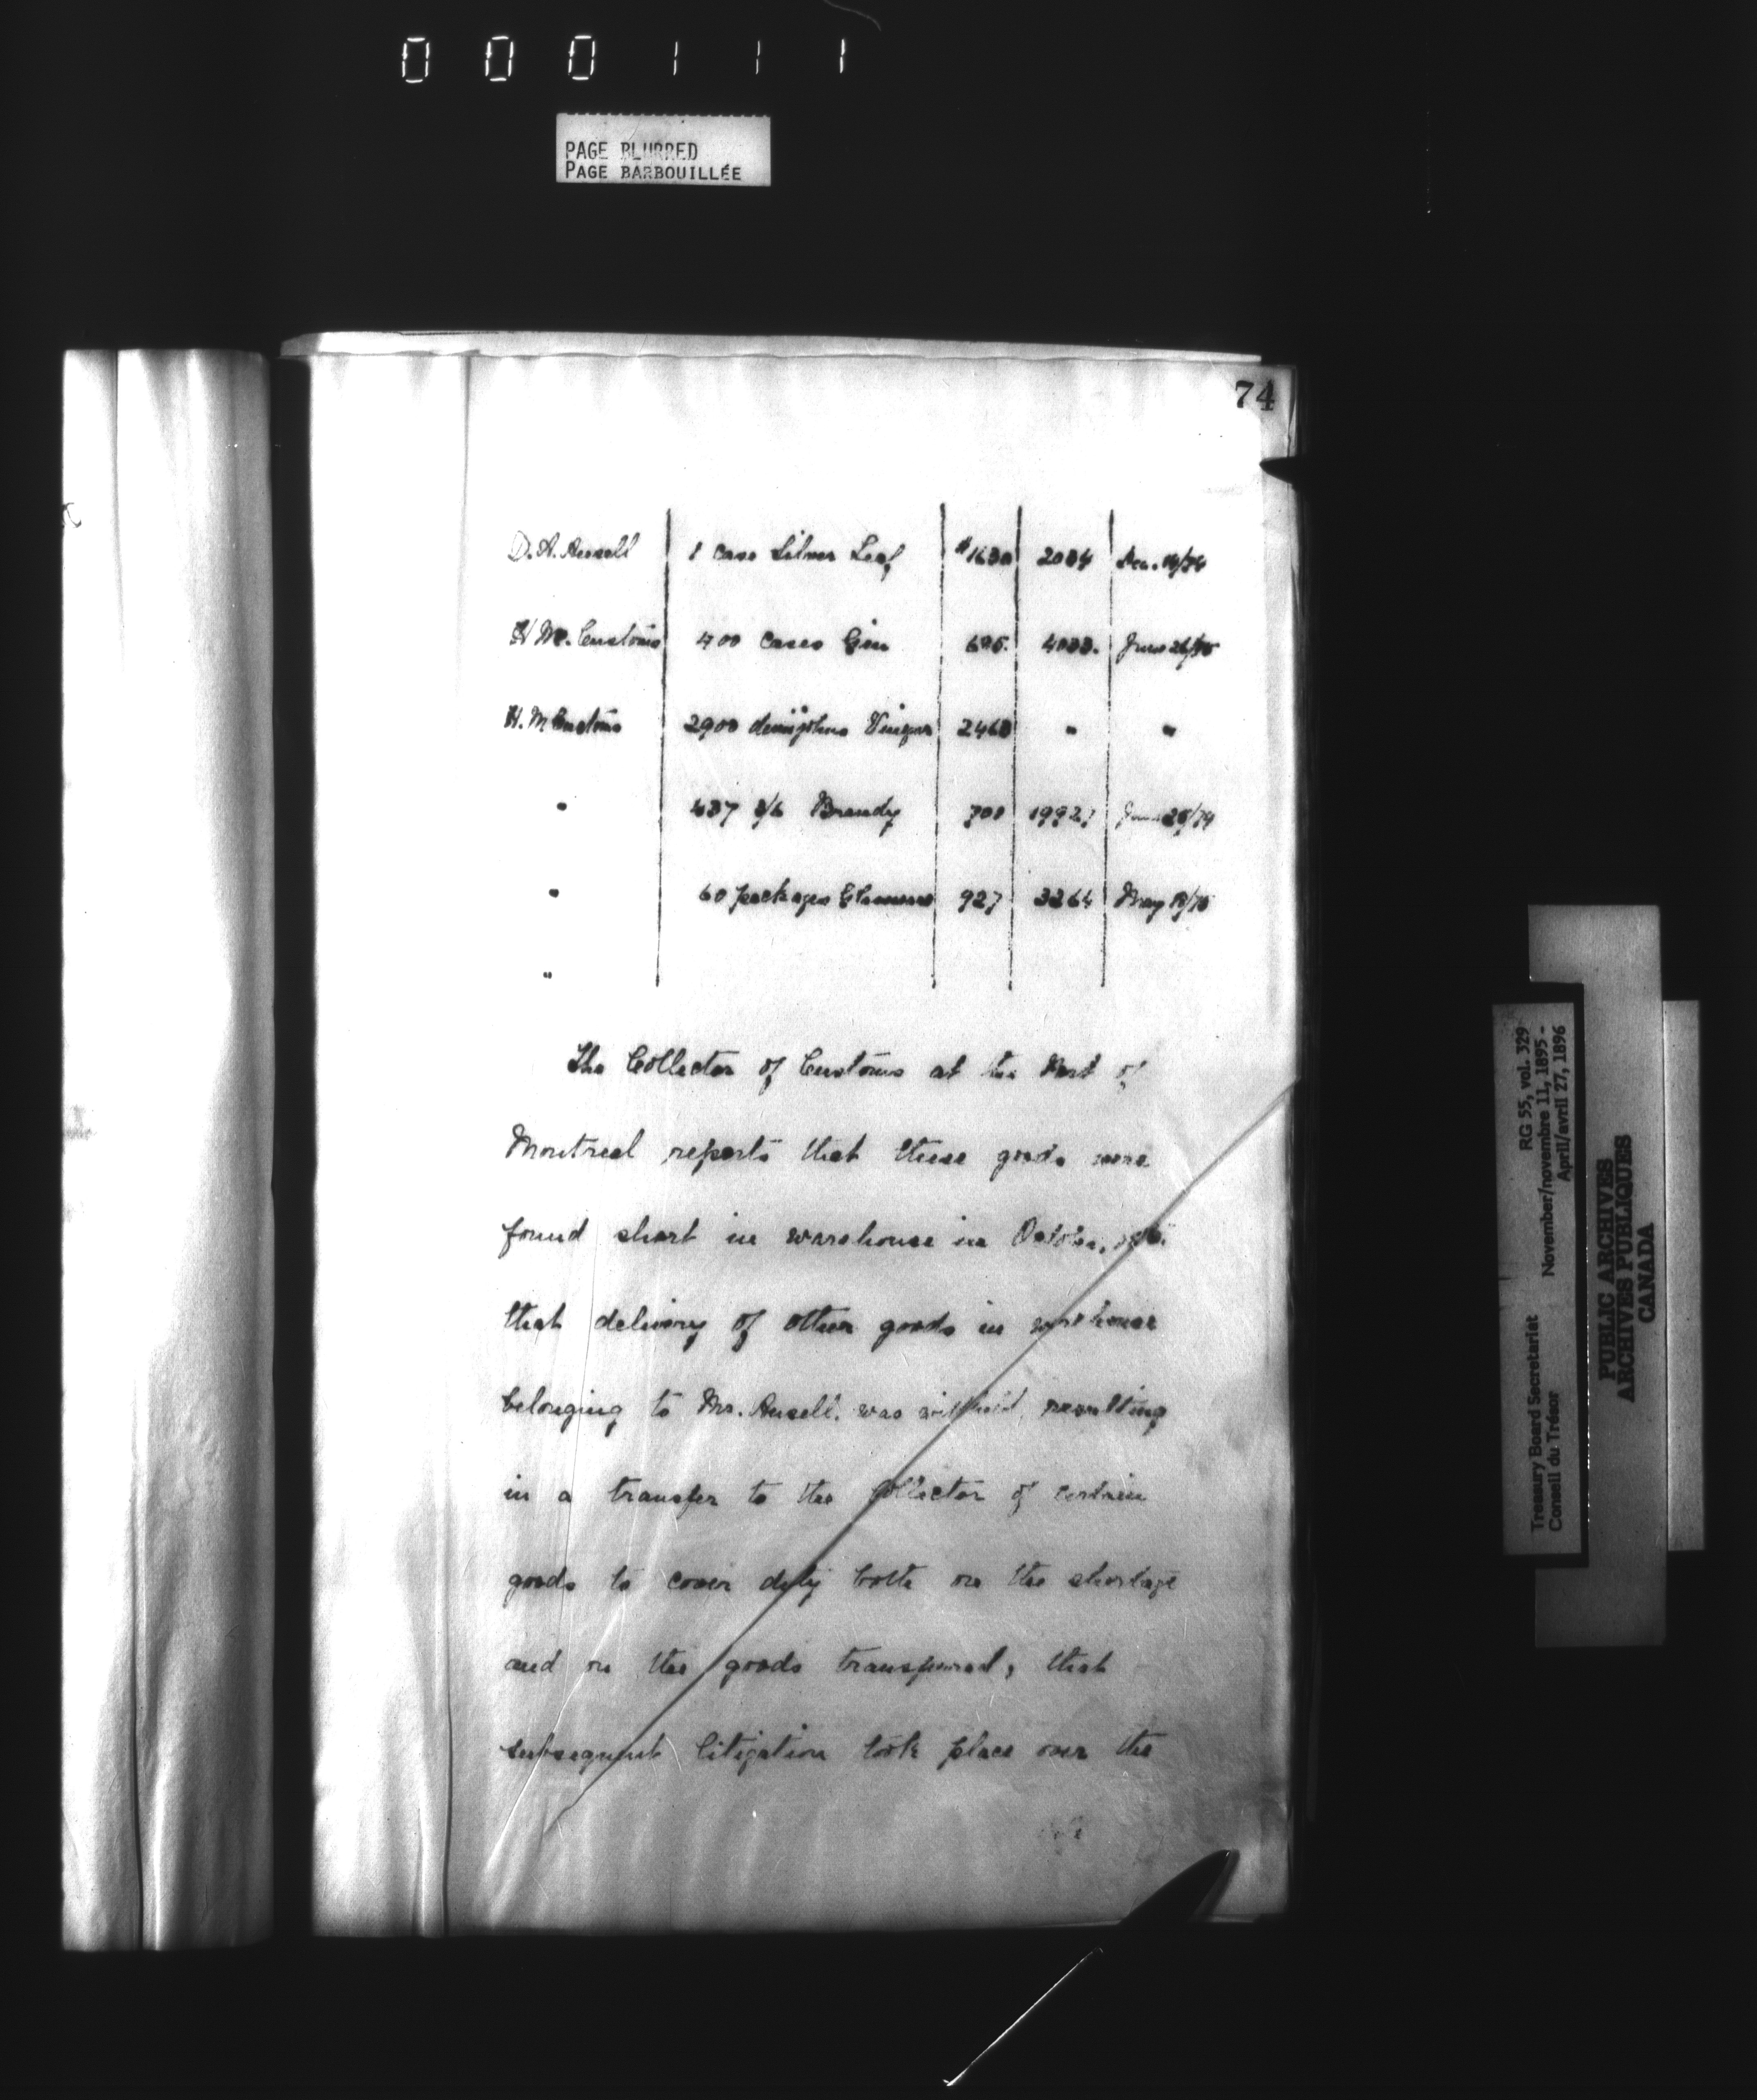 0 0 0 1 1 1
PAGE BLURRED
PAGE BARBOUILLÉE
74
D. A. Ansell 1 case Silver Leaf $1630 2034 Dec. 14/74
H M. Customs 400 cases Gin 695. 4033. June 26/75
H. M Customs 2900 demijohns Vinegar 2460 " "
" 437 c/s Brandy 700 19927 June 25/74
" 60 packages Glassware 927 3264 May 18/75
"
The Collector of Customs at the Port of
Montreal reports that these goods were
found short in warehouse in October,
that delivery of other goods in warehouse
belonging to Mr. Ansell. was withheld, resulting
in a transfer to the Collector of certain
goods to cover duty both on the shortage
and on the goods transferred, that
subsequent litigation took place over the
Treasury Board Secretariat RG 55, vol. 329
Conseil du Trésor November/novembre 11, 1895 -
April/avril 27, 1896
PUBLIC ARCHIVES
ARCHIVES PUBLIQUES
CANADA